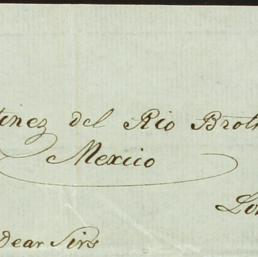 tinez del Rio Broth
Mexico
Lon
Dear Sirs